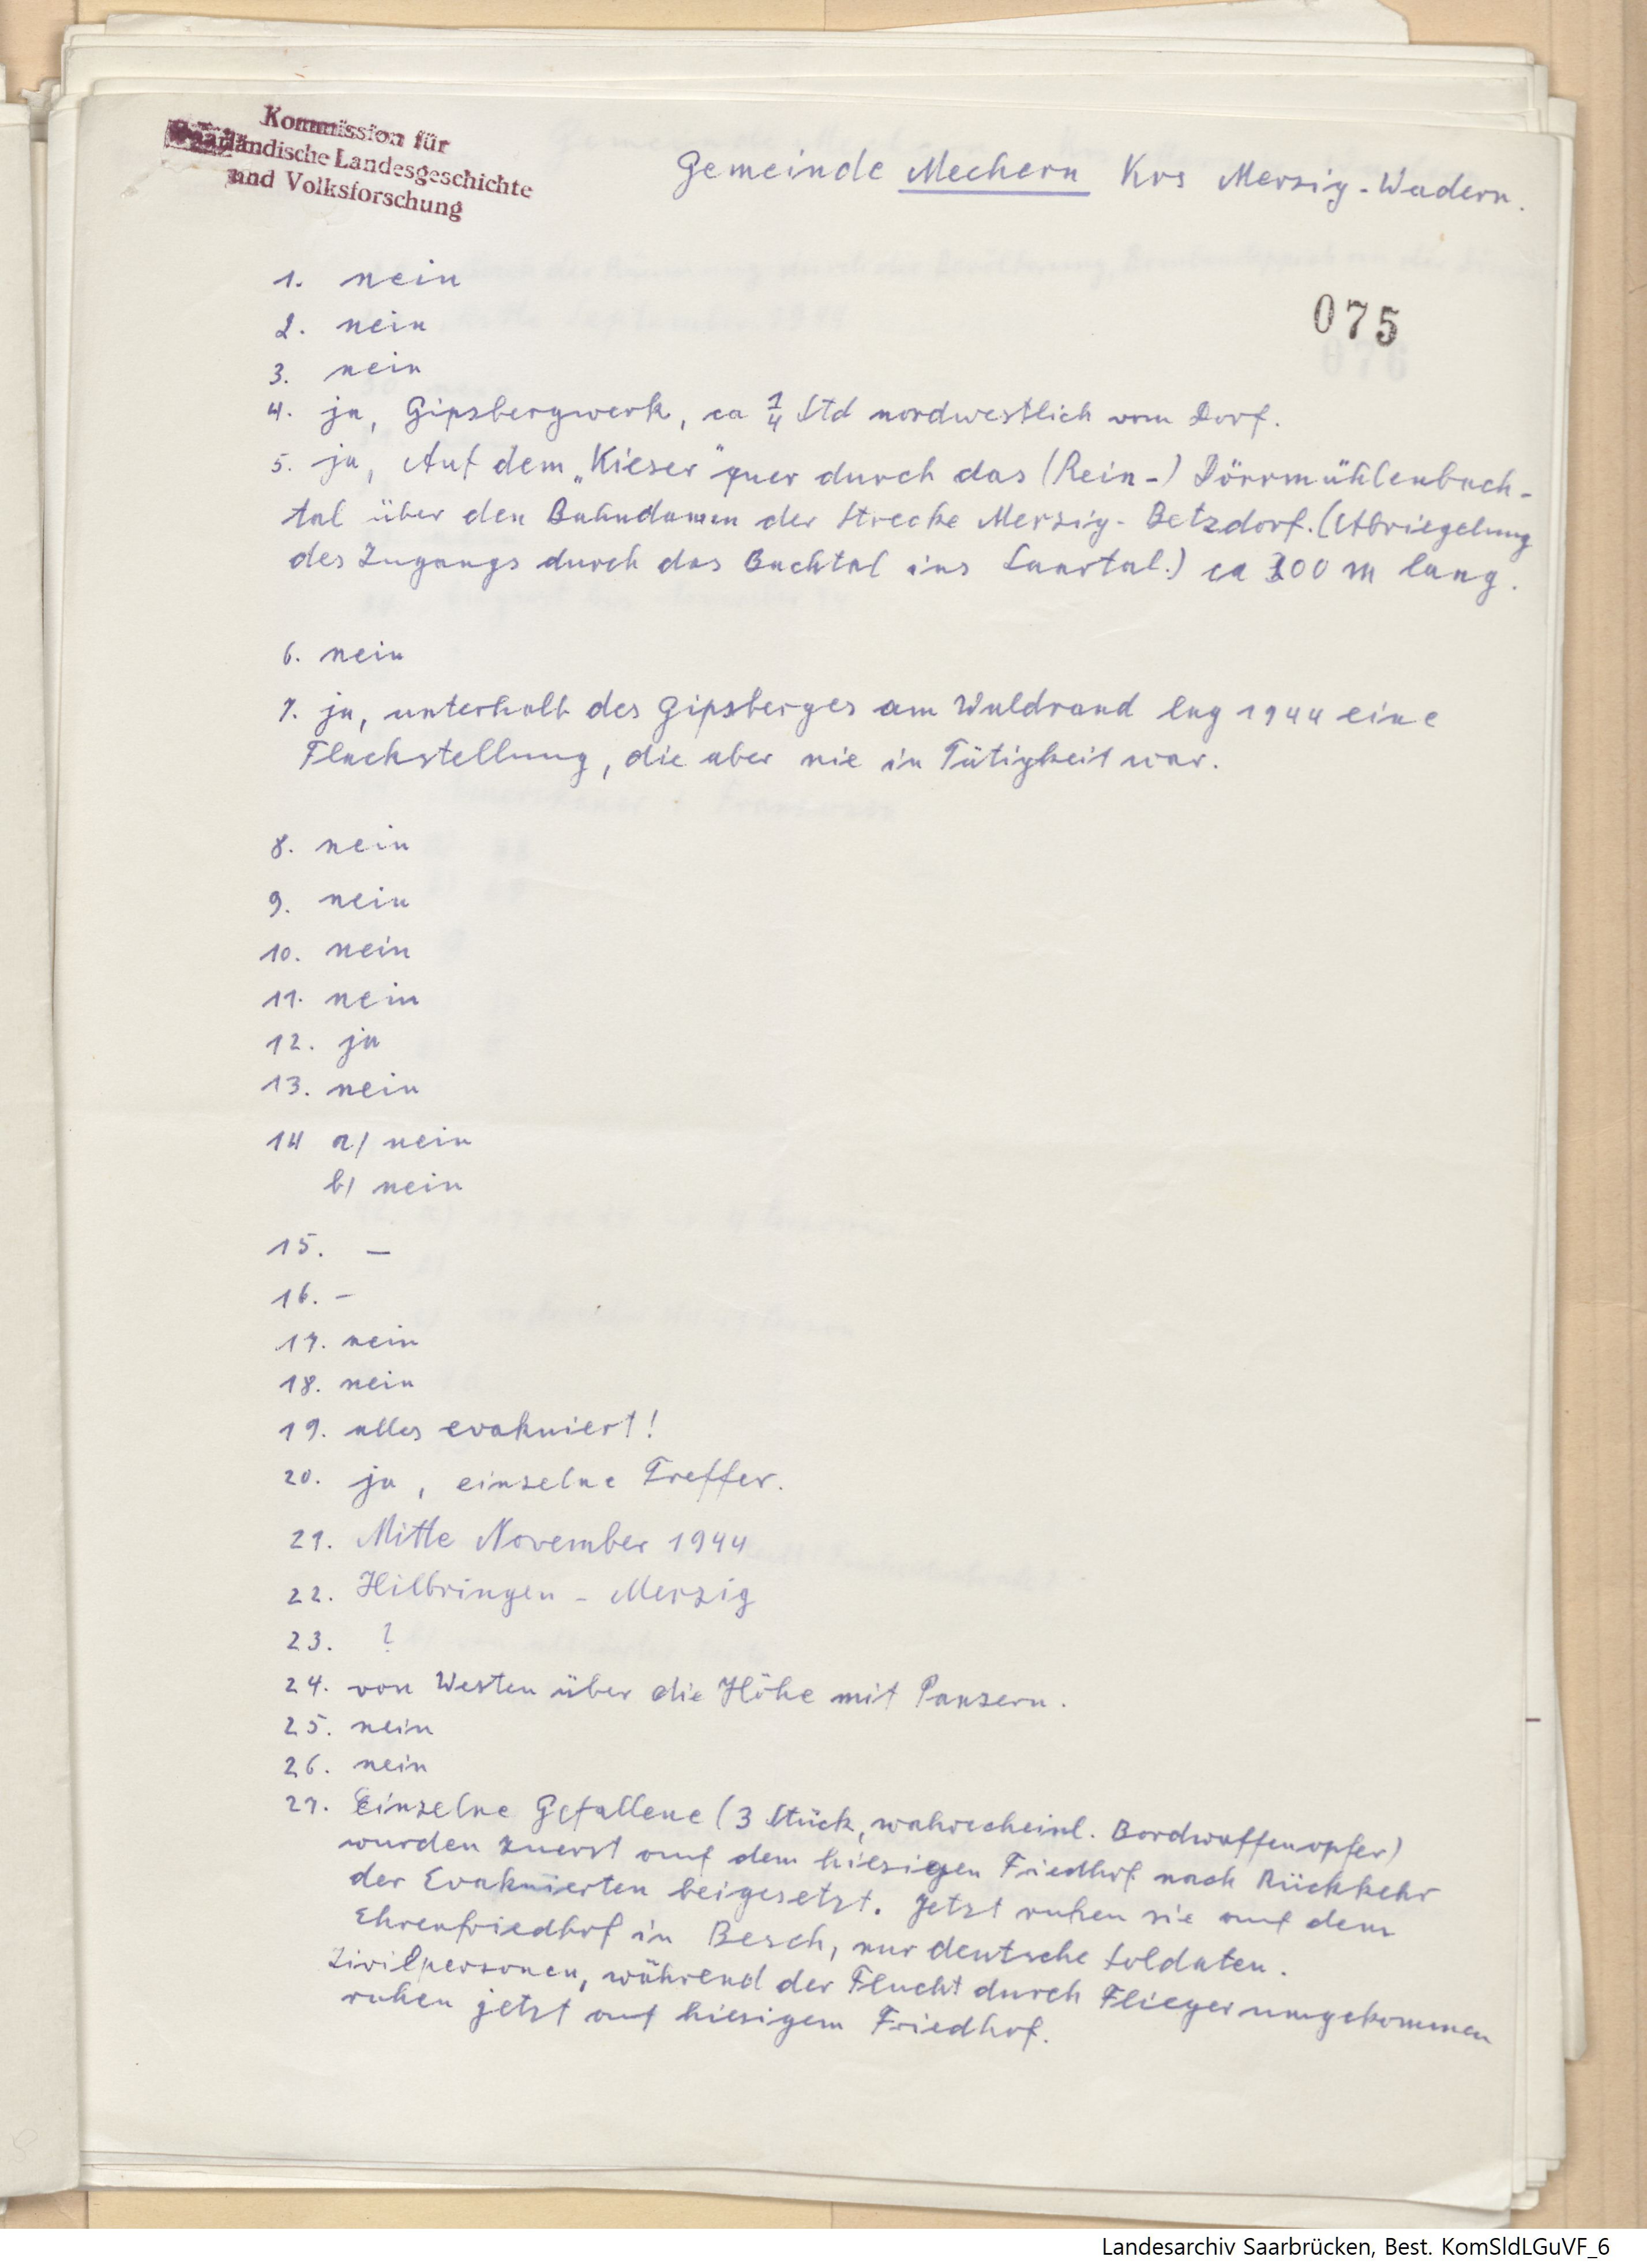 Kommission für
Saarländische Landesgeschichte
und Volksforschung
Gemeinde Mechern Krs Merzig-Wadern.
075
1. nein
2. nein
3. nein
4. ja, Gipsbergwerk, ca 1/4 Std nordwestlich vom Dorf.
5. ja, Auf dem „Kieser" quer durch das (Rein-) Dörrmühlenbach-
tal über den Bahndamm der Strecke Merzig - Betzdorf. (Abriegelung
des Zugangs durch das Bachtal ins Saartal.) ca 200 m lang.
6. nein
7. ja, unterhalb des Gipsberges am Waldrand lag 1944 eine
Flackstellung, die aber nie in Tätigkeit war.
8. nein
9. nein
10. nein
11. nein
12. ja
13. nein
14 a) nein
b) nein
15. —
16. -
17. nein
18. nein
19. alles evakuiert!
20. ja, einzelne Treffer.
21. Mitte November 1944
22. Hilbringen - Merzig
23. ?
24. von Westen über die Höhe mit Panzern.
25. nein
26. nein
27. Einzelne Gefallene (3 Stück, wahrscheinl. Bordwaffenopfer)
wurden zuerst auf dem hiesigen Friedhof nach Rückkehr
der Evakuierten beigesetzt. Jetzt ruhen sie auf dem
Ehrenfriedhof in Besch, nur deutsche Soldaten.
Zivilpersonen, während der Flucht durch Flieger umgekommen
ruhen jetzt auf hiesigem Friedhof.
Landesarchiv Saarbrücken, Best. KomSldLGuVF_6